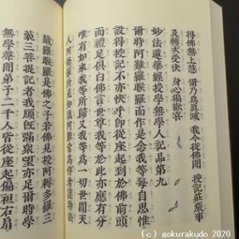 得佛無上慧 爾乃爲眞滅 我今從佛聞 授記莊嚴事
及轉次受決 身心徧歡喜
妙法蓮華經授學無學人記品第九
爾時阿難羅睺羅而作是念我等每自思惟
設得授記不亦快乎卽從座起到於佛前頭
面禮足俱白佛言世尊我等於此亦應有分
唯有如來我等所歸又我等爲一切世間天
人阿修羅所見知識阿難常爲侍者護持法
藏羅睺羅是佛之子若佛見授阿耨多羅三
藐三菩提記者我願旣滿衆望亦足爾時學
無學聲聞弟子二千人皆從座起偏袒右肩
(c) gokurakudo 2010